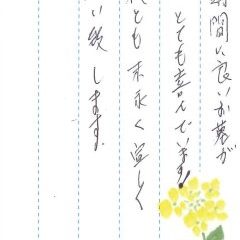 期間に良いお墓が
とても喜んでいます!
とも末永く宜しく
い致します。